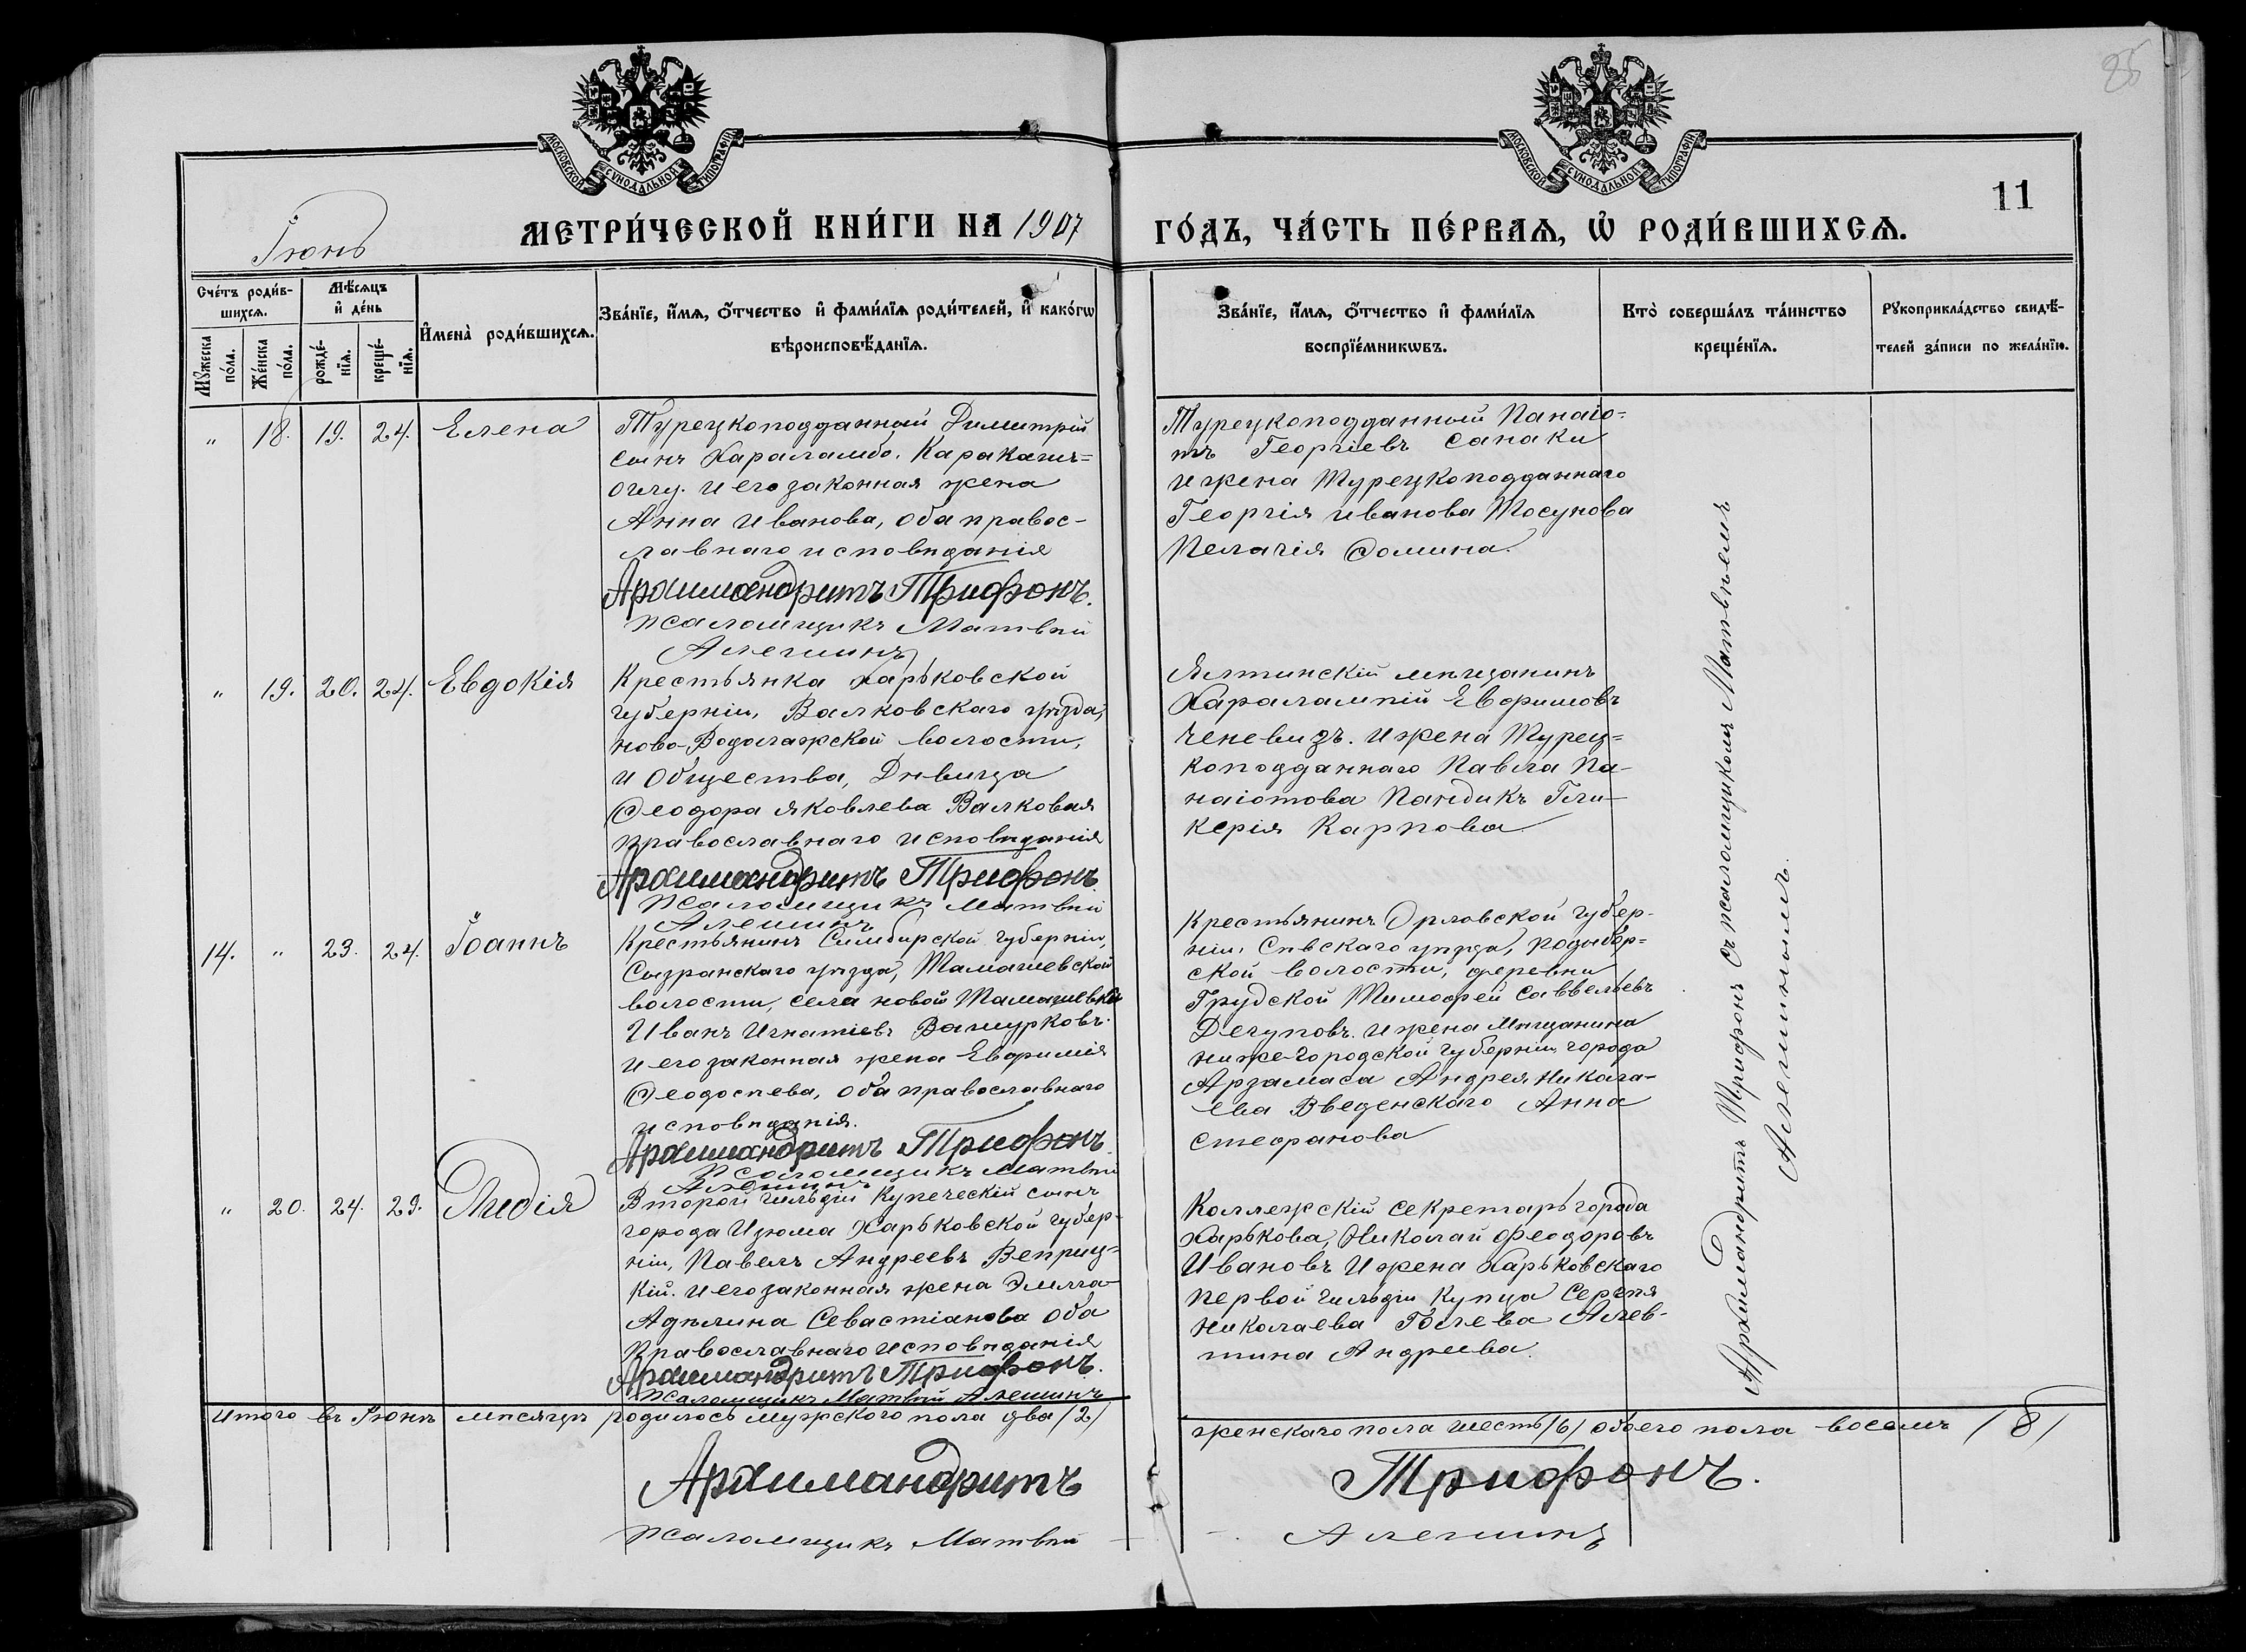 85
МОСКОВСКОЙ СѴНОДАЛЬНОЙ ТИПОГРАФІИ
МОСКОВСКОЙ СѴНОДАЛЬНОЙ ТИПОГРАФІИ
11
Іюнь
МЕТРИ́ЧЕСКОЙ КНИ́ГИ НА 1907 ГО́ДЪ, ЧА́СТЬ ПЕ́РВАѦ, Ѡ҆ РОДИ́ВШИХСѦ.
Сче́тъ роди́в-
шихсѧ.
Мꙋ́жеска по́ла.
Же́нска по́ла.
Мѣ́сѧцъ
и҆ де́нь
рожде́-
нїѧ.
креще́-
нїѧ.
И҆мена̀ роди́вшихсѧ.
Зва́нїе, и҆́мѧ, ѻ҆́тчество и҆ фами́лїѧ роди́телей, и҆ како́гѡ
вѣроисповѣ́данїѧ.
Зва́нїе, и҆́мѧ, ѻ҆́тчество и҆ фами́лїѧ
воспрїе́мникѡвъ.
Кто̀ соверша́лъ та́инство
креще́нїѧ.
Рꙋкоприкла́дство свидѣ́-
телей за́писи по жела́нїю.
" 18. 19. 24. Елена
Турецкоподданный Димитрій
сынъ Хараламбо. Каракаш=
оглу. и его законная жена
Анна Иванова, оба правос-
лавнаго исповѣданія
Архимандритъ Трифонъ.
Псаломщикъ Матвѣй
Алешинъ
Турецкоподданный Панаіо-
тъ Георгіевъ Санаки
и жена Турецкоподданнаго
Георгія Иванова Тосунова
Пелагія Ѳомина.
" 19. 20. 24. Евдокія
Крестьянка Харьковской
губерніи, Валковскаго уѣзда,
Ново-Водолажской волости,
и Общества, Дѣвица
Ѳеодора Яковлева Валковая
православнаго исповѣданія
Архимандритъ Трифонъ.
Псаломщикъ Матвѣй
Алешинъ
Ялтинскій мѣщанинъ
Харалампій Евфимовъ
Ченевизъ. и жена Турец=
коподданнаго Павла Па-
наіотова Пандикъ Гли-
керія Карпова
14. " 23. 24. Іоаннъ
Крестьянинъ Симбирской губерніи,
Сызранскаго уѣзда, Томашевской
волости, села новой Томашевки
Иванъ Игнатіевъ Вашурковъ.
и его законная жена Евфимія
Ѳеодосѣева, оба православнаго
исповѣданія.
Архимандритъ Трифонъ.
Псаломщикъ Матвѣй
Алешинъ
Крестьянинъ Орловской губер-
ніи, Сѣвскаго уѣзда,
ской волости, деревни
Грудской Тимофей Саввельевъ
Дегуповъ. и жена Мѣщанина
Ниже-Городской губерніи города
Арзамаса Андрея Никола-
ева Введенскаго Анна
Стефанова
" 20. 24. 29. Лидія
Второй гильдіи Купеческій сынъ
города Изюма Харьковской губер-
ніи, Павелъ Андреевъ Веприц=
кій. и его законная жена
Адѣлина Севастіанова оба
Православнаго исповѣданія
Архимандритъ Трифонъ.
Псаломщикъ Матвѣй Алешинъ
Коллежскій секретарь города
Харькова, Николай Феодоровъ
Ивановъ и жена Харьковскаго
первой гильдіи Купца Сергѣя
Николаева Алев-
тина Андреева.
Архимандритъ Трифонъ съ псаломщикомъ Матвѣемъ
Алешинымъ.
Итого въ Іюнѣ мѣсяцѣ родилось мужского пола два /2/
женскаго пола шесть /6/ обоего пола восемь /8/
Архимандритъ Трифонъ.
Псаломщикъ Матвѣй Алешинъ